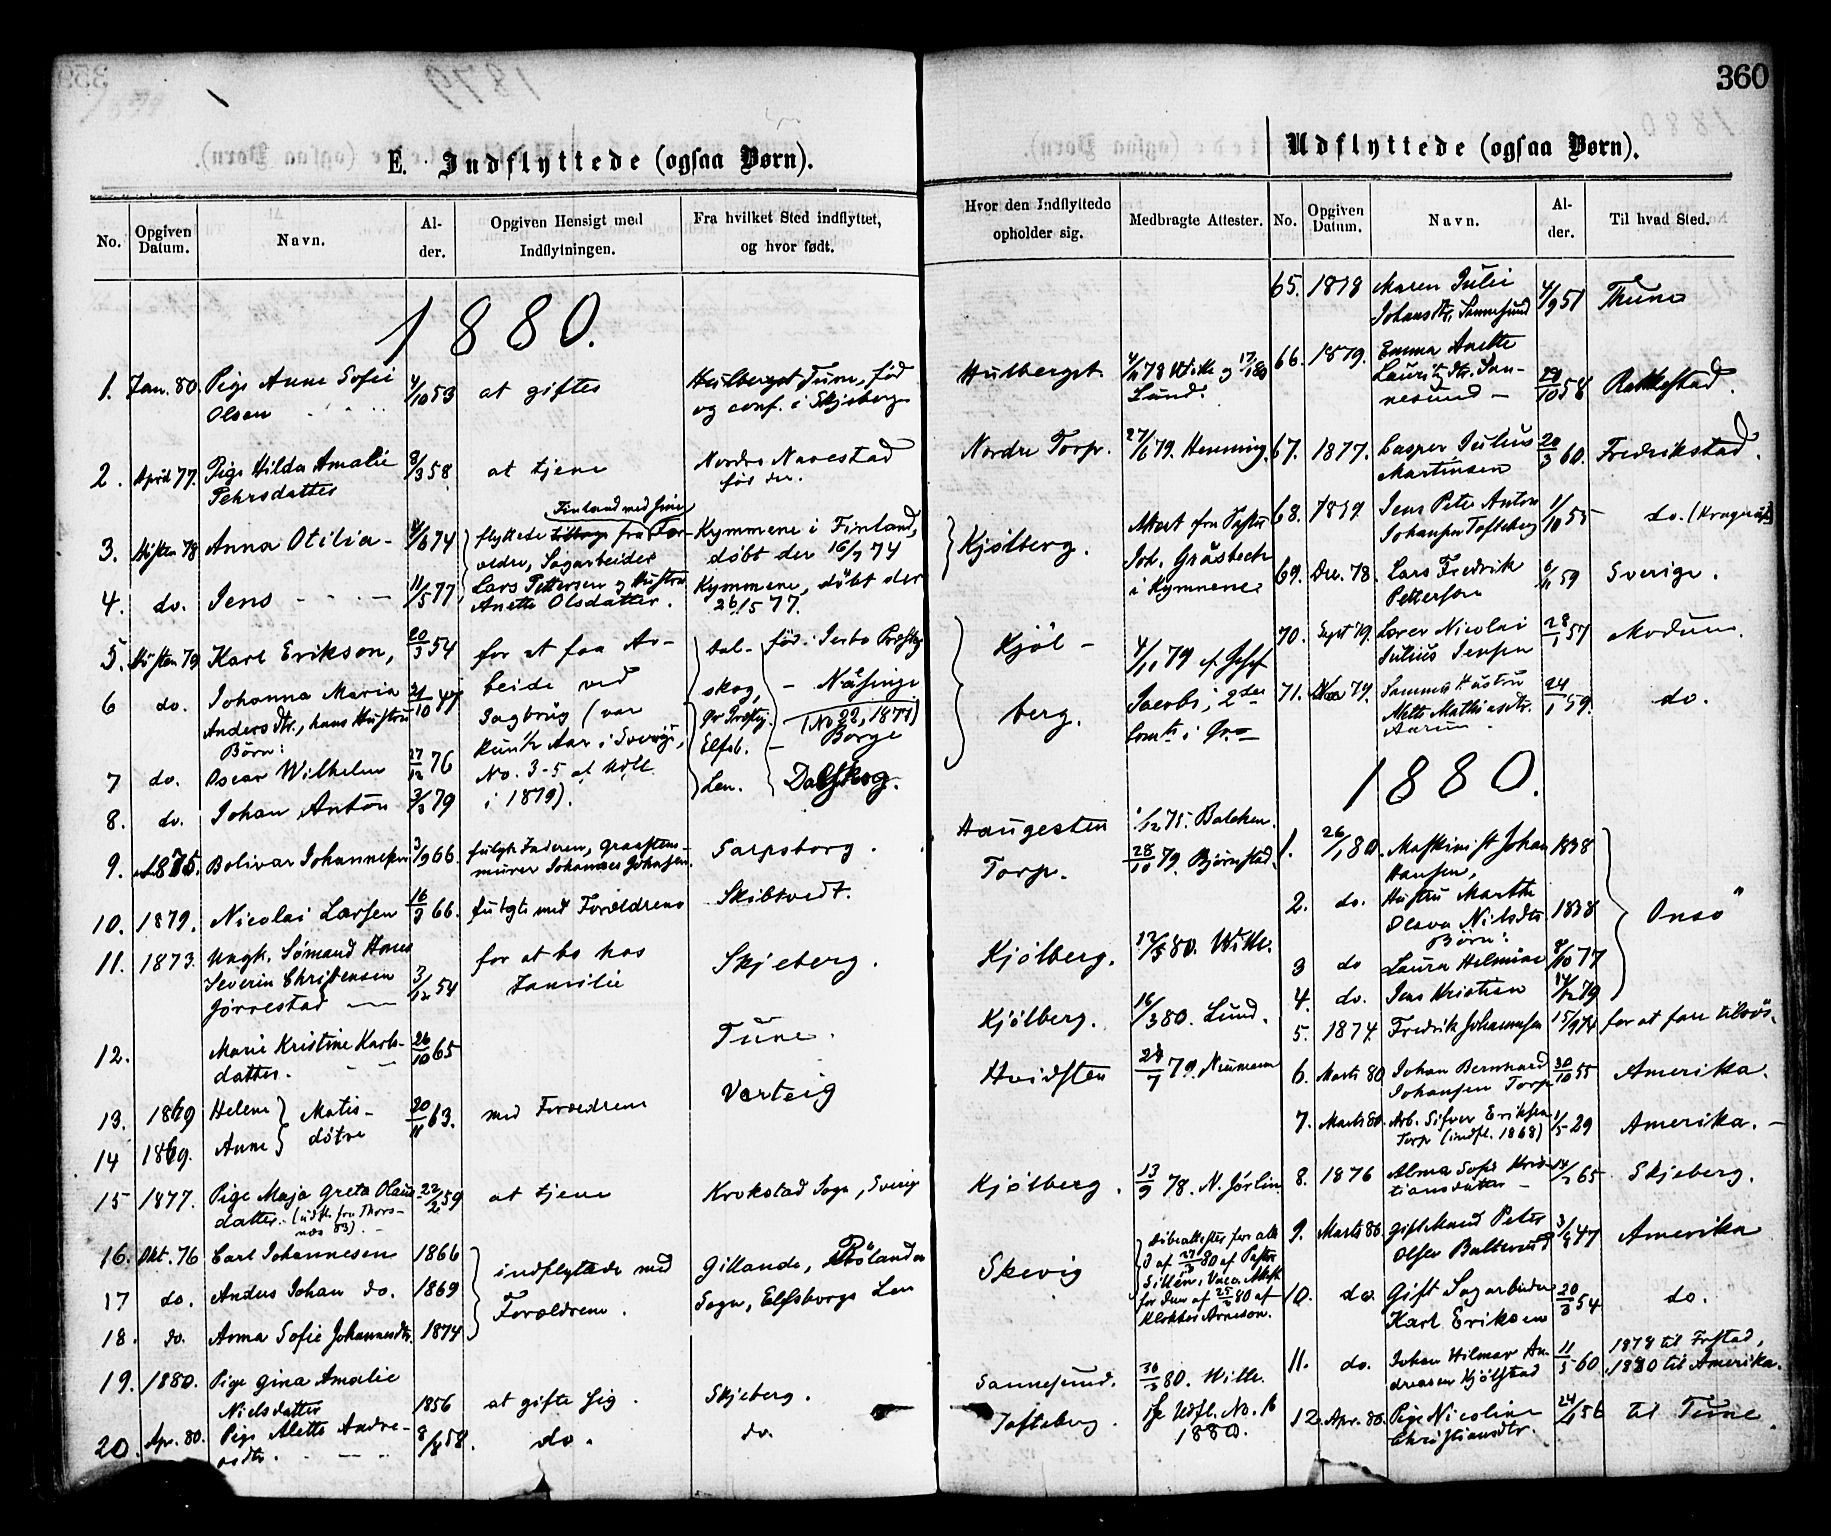 360
E. Indflyttede (ogsaa Børn).
No. Opgiven Datum. Navn. Al-der. Opgiven Hensigt med Indflytningen. Fra hvilket Sted indflyttet, og hvor født. Hvor den Indflyttede opholder sig. Medbragte Attester.
1880.
1. Jan. 80. Pige Anne Sofie 4/10 53 at giftes Hulberget Tune, fød Hulberget.
Olsen og conf. i Skjeberg Lund.
2. April 77. Pige Hilda Amalie 8/3 58 at tjene Nordre Navestad Nordre Torp. 27/6 79. Henning.
Pehrsdatter fød der.
Finland med sine
3. Høsten 78 Anna Otilia - 74 flyttede fra For- Kymmene i Finland, Kjølberg. Attest fra Pastor
ældre, Sagarbeider døbt der 16/7 74 Joh. Gråsbeck
4. do. Jens - 11/5 77 Lars Pettersen og Hustru Kymmene, døbt der i Kymmene
Anette Olsdatter. 26/5 77.
5. Høsten 79 Karl Erikson, 20/3 54 for at faa Ar- Dal- fød. Jerbo Præstg. Kjøl-
6 do. Johanna Maria 21/10 47 beide ved skog, - Näsinge berg. 4/11 79
Andersdtr., hans Hustru Sagbrug (var (No 22, 1877) Jacobi, 2den
Børn: kun ½ Aar i Sverige, Elfsb. - Borge Comt. i
7 do. Oscar Wilhelm 27/12 76 No. 3-5 af Udfl. Len. Dalskog.
8. do. Johan Anton 3/3 79 i 1879).
9. 1875. Bolivar Johannesen 3/9 66. fulgte Faderen, graasteens- Sarpsborg. Haugesten 1/12 75. Balchen.
murer Johannes Johansen. Torp. 28/10 79. Bjørnstad.
10. 1879. Nicolai Larsen 16/3 66. fulgte med Forældrene Skibtvedt.
11. 1873. Ungk. Sømand Hans for at bo hos Skjeberg. Kjølberg. 80. Wille.
Severin Christensen 3/12 54 Familie
Jørrestad
12. Marie Kristine Karls- 26/10 65 Tune. Kjølberg. 16/3 80. Lund.
datter.
13. 1869 Helene } Matis- 20/11 63. med Forældrene Varteig Hvidsten 79. Neumann
14 1869. Anne } døtre
15 1877. Pige Maja Greta Olaus- 22/2 59 at tjene Krokstad Sogn, Sverige Kjølberg. 13/9 78. N. Jørlin.
datter. (udfl. fra Thors-
næs 83).
16. Okt. 76 Carl Johannesen 1866 indflyttede med Gillanda, Rölanda Skivig Døbeattester for alle
17 do. Anders Johan do. 1869 Forældrene. Sogn, Elfsborgs Len 3 af 27/3 80 af Pastor
18. do. Anna Sofie Johannesdtr. 1874 Sillén, Vacc. Attest
for dem af 25/3 80 af
Klokker Arneson.
19. 1880. Pige Gina Amalie at gifte sig. Skjeberg. Sannesund. 30/3 80. Wille.
Nielsdatter 1856
20. Apr. 80. Pige Alette Andre- 8/8 58. do. do. Tofteberg. se Udfl. No. 16
asdtr. 1880.
Udflyttede (ogsaa Børn).
No. Opgiven Datum. Navn. Al-der. Til hvad Sted.
65. 1878 Maren Julie 4/9 51 Thune
Johansdtr. Sannesund
66. 1879. Emma Anette
Lauritzdtr. San- 29/10 58 Rakkestad.
nesund -
67. 1877. Casper Julius 20/3 60. Fredrikstad.
Martinsen
68. 1879 Jens Peter Anton 1/10 55 do.
Johansen Tofteberg
69. Dec. 78. Lars Fredrik 59 Sverige.
Petterson
70. Sept 79. Lorer Nicolai 28/1 57 Modum.
Julius Jensen
71. 79. Sammes Hustru 24/1 59. do.
Mette Mathiasdtr.
Aarum.
1880.
1. 26/1 80. Maskinist Johan 1838
Hansen,
2. do. Hustru Marthe
Olava Nilsdtr 1838 Onsø
Børn:
3 do Laura Helmine 8/10 77
4. do. Jens Kristian 79
5. 1874. Fredrik Johannesen 15/9 74 for at fare tilsøs.
6. Marts 80 Johan Bernhard 30/10 55 Amerika.
Johansen Torp
7. Marts 80. Arb. Sifver Eriksen 1/5 29 Amerika. -
Torp (indfl. 1868)
8. 1876 Alma Sofie Kris- 65 Skjeberg.
tiansdatter -
9. Marts 80. Giftemand Peter 47 Amerika
Olsen Butterud
10. do. Gift Sagarbeider 20/3 54 do.
Karl Eriksen
11. do. Johan Hilmar An- 11/5 60 1878 til Frstad,
dreasen Kjølstad 1880 til Amerika.
12. Apr. 80. Pige Nicoline 56 til Tune.
Christiansdtr.